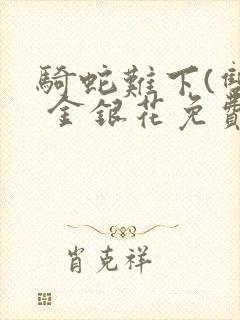 騎蛇難下(雙
金銀花免費
肖克祥